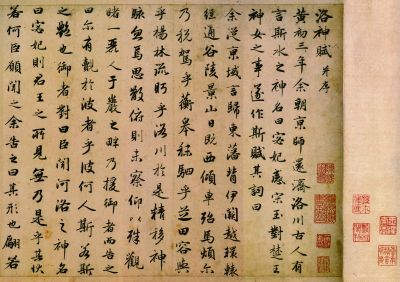 洛神賦 并序
黃初三年余朝京師還濟洛川古人有
言斯水之神名曰宓妃感宋玉對楚王
神女之事遂作斯賦其詞曰
余從京域言歸東藩背伊闕越轘轅
經通谷陵景山日既西傾車殆馬煩爾
乃稅駕乎蘅皋秣駟乎芝田容與
乎楊林流眄乎洛川於是精移神
駭忽焉思散俯則未察仰以殊觀
睹一麗人于巖之畔乃援御者而告之
曰爾有覿於彼者乎彼何人斯若斯
之豔也御者對曰臣聞河洛之神名
曰宓妃則君王之所見無乃是乎其狀
若何臣願聞之余告之曰其形也翩若